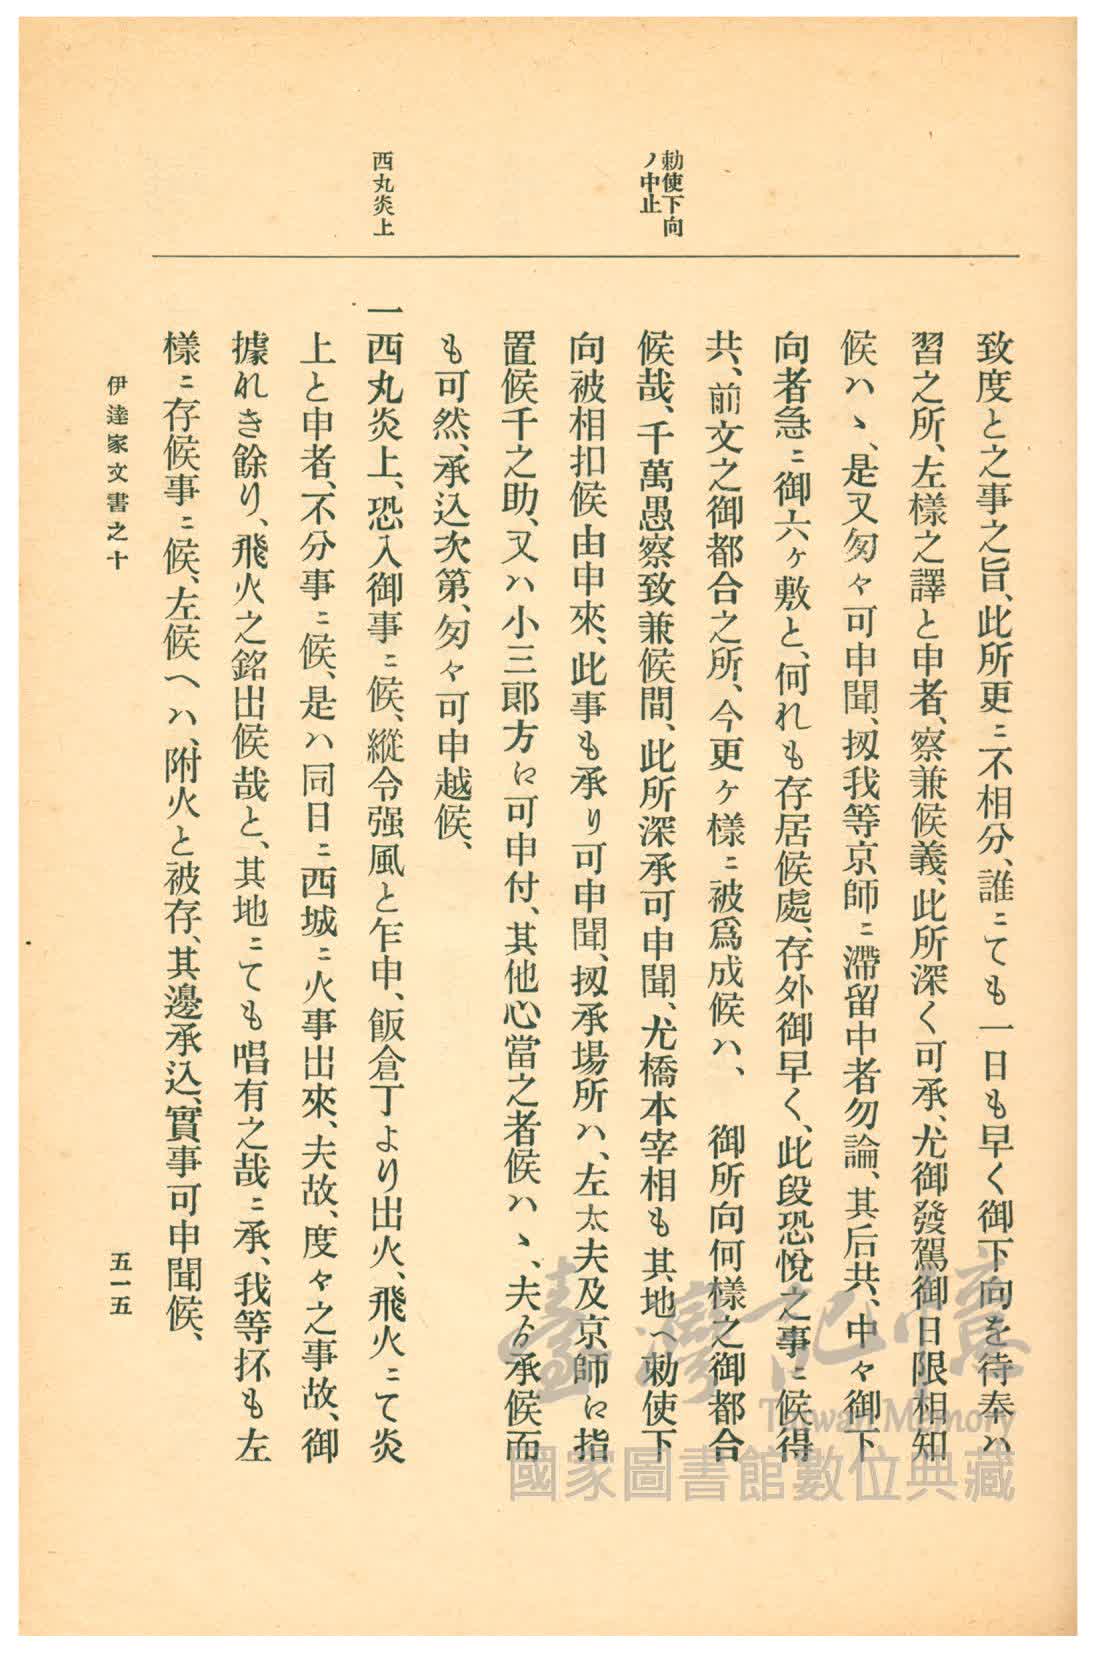 勅使下向
ノ中止
西丸炎上
致度と之事之旨、此所更ニ不相分、誰ニても一日も早く御下向を待奉ハ
習之所、左樣之譯と申者、察兼候義、此所深く可承、尤御發駕御日限相知
候ハヽ、是又匇々可申聞、扨我等京師ニ滯留中者勿論、其后共、中々御下
向者急ニ御六ヶ敷と、何れも存居候處、存外御早く、此段恐悅之事ニ候得
共、前文之御都合之所、今更ヶ樣ニ被爲成候ハ、　御所向何樣之御都合
候哉、千萬愚察致兼候間、此所深承可申聞、尤橋本宰相も其地へ勅使下
向被相扣候由申來、此事も承り可申聞、扨承場所ハ、左太夫及京師ゟ指
置候千之助、又ハ小三郞方ゟ可申付、其他心當之者候ハヽ、夫ゟ承候而
も可然、承込次第、匇々可申越候、
一西丸炎上、恐入御事ニ候、縱令强風と乍申、飯倉丁より出火、飛火ニて炎
上と申者、不分事ニ候、是ハ同日ニ西城ニ火事出來、夫故、度々之事故、御
據れき餘り、飛火之銘出候哉と、其地ニても唱有之哉ニ承、我等抔も左
樣ニ存候事ニ候、左候へハ、附火と被存、其邊承込、實事可申聞候、
伊達家文書之十
五一五
臺灣記憶
Taiwan Memory
國家圖書館數位典藏